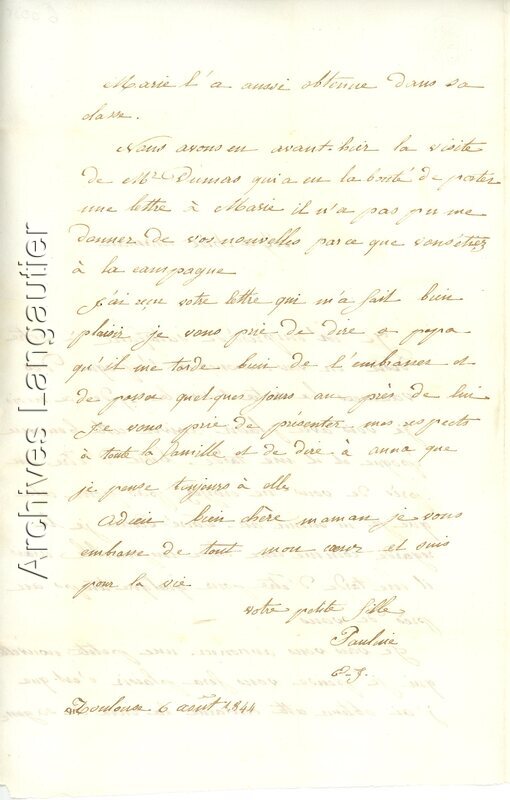 Marie l'a aussi obtenue dans sa
classe.
Nous avons eu avant-hier la visite
de Mr Dumas qui a eu la bonté de porter
une lettre à Marie il n'a pas pu me
donner de vos nouvelles parce que vous étiez
à la campagne
J'ai reçu votre lettre qui m'a fait bien
plaisir je vous prie de dire a papa
qu'il me tarde bien de l'embrasser et
de passer quelques jours au près de lui
Je vous prie de présenter mes respects
à toute la famille et de dire à anna que
je pense toujours à elle
Adieu bien chère maman je vous
embrasse de tout mon cœur et suis
pour la vie
votre petite fille
Pauline
E. J.
Toulouse 6 août 1844
Archives Langautier